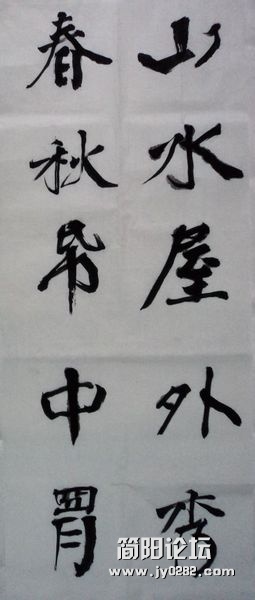 山水屋外
春秋帋中
简阳论坛
www.jy0282.com